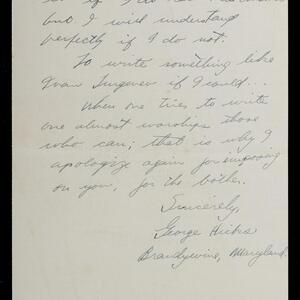 but I will understand
perfectly if I do not.
To write something like
Ivan Turgenev if I could...
When one tries to write
one almost worships those
who can; that is why I
apologize again for imposing
on you, for the bother.
Sincerely,
George Hicks
Brandywine, Maryland.